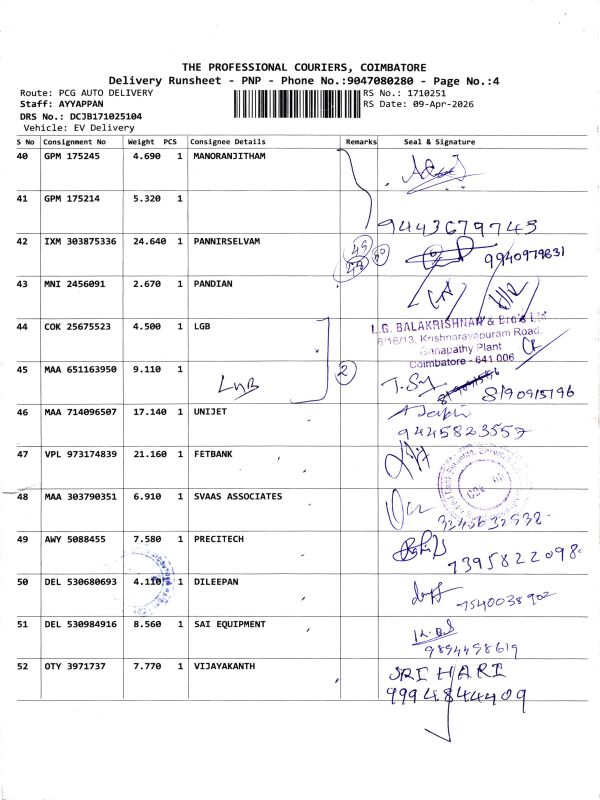 THE PROFESSIONAL COURIERS, COIMBATORE
Delivery Runsheet - PNP - Phone No.:9047080280 - Page No.:4
Route: PCG AUTO DELIVERY
RS No.: 1710251
Staff: AYYAPPAN
RS Date: 09-Apr-2026
DRS No.: DCJB171025104
Vehicle: EV Delivery
S No Consignment No Weight PCS Consignee Details Remarks Seal & Signature
40 GPM 175245 4.690 1 MANORANJITHAM
41 GPM 175214 5.320 1
9443679743
42 IXM 303875336 24.640 1 PANNIRSELVAM
9940979831
43 MNI 2456091 2.670 1 PANDIAN
44 COK 25675523 4.500 1 LGB
L.G. BALAKRISHNAN & Bro's Ltd
6/16/13, Krishnarayapuram Road,
Ganapathy Plant
Coimbatore - 641 006
45 MAA 651163950 9.110 1
LGB
2
8190915196
46 MAA 714096507 17.140 1 UNIJET
9445823557
47 VPL 973174839 21.160 1 FETBANK
48 MAA 303790351 6.910 1 SVAAS ASSOCIATES
49 AWY 5088455 7.580 1 PRECITECH
7395822098
50 DEL 530680693 4.110 1 DILEEPAN
7540038902
51 DEL 530984916 8.560 1 SAI EQUIPMENT
9894498619
52 OTY 3971737 7.770 1 VIJAYAKANTH
SRI HARI
9994844409